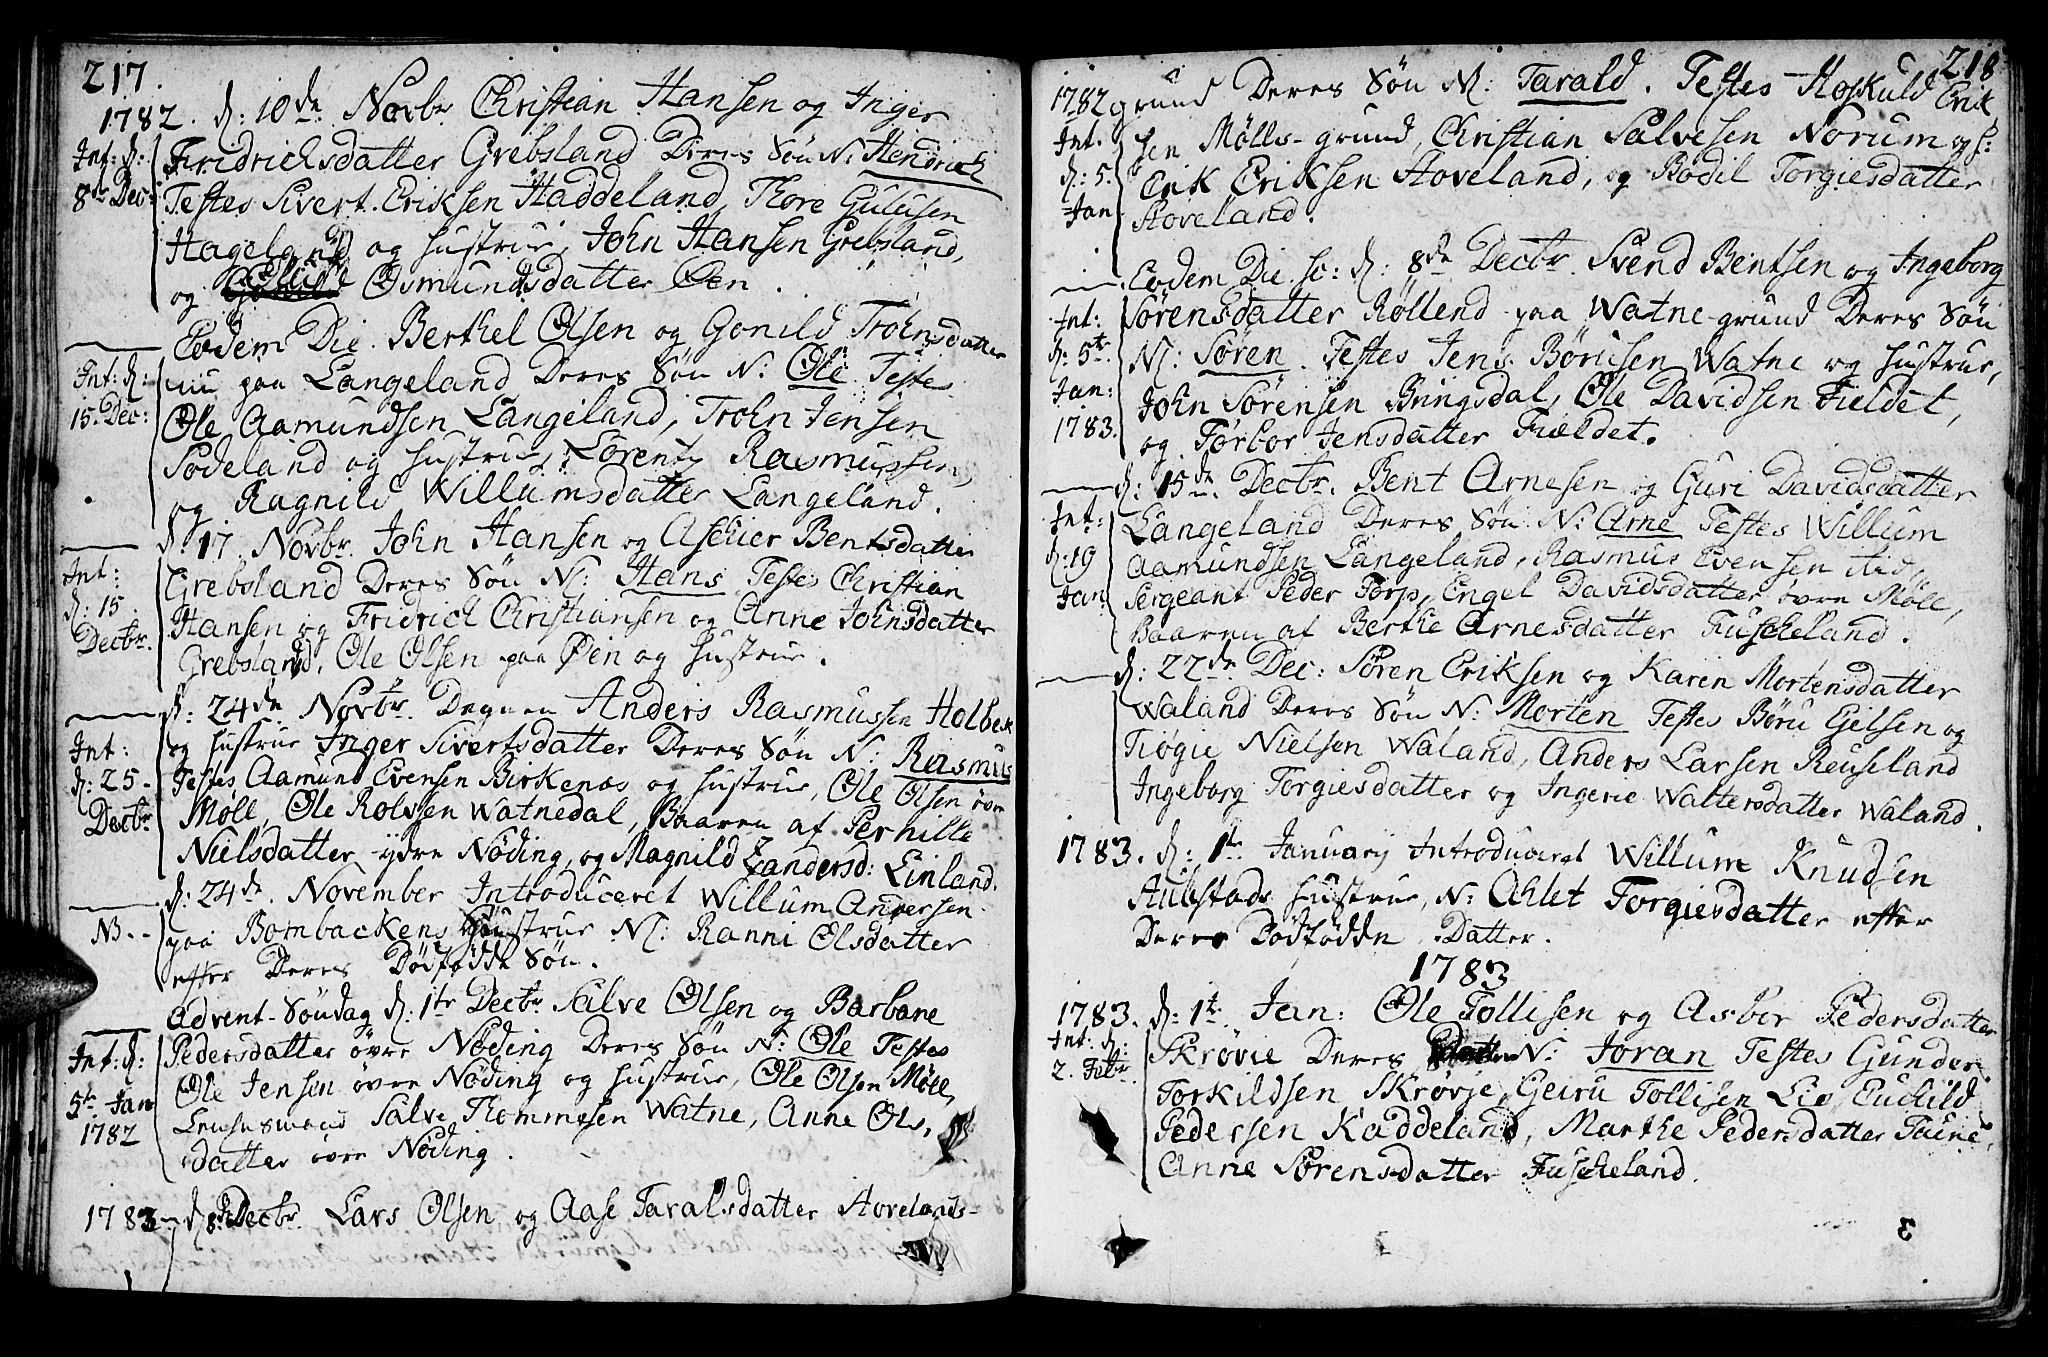 217.
1782. d: 10de Novbr Christian Hansen og Inger
Int: d: Fridrichsdatter Grebsland Deres Søn N: Hendrich
8de Dec: Testes Sivert Eriksen Haddeland, Thore Gulufsen
Hageland og Hustrue, John Hansen Grebsland,
og Osmundsdatter Øen.
Eodem Die Berthel Olsen og Gonild Trohnsdatter
Int: d: nu paa Langeland Deres Søn N: Ole Testes
15. Dec: Ole Aamundsen Langeland, Trohn Jensen
Sodeland og Hustrue, Lorentz Rasmussen
og Ragnild Willumsdatter Langeland.
d: 17. Novbr. John Hansen og Aschier Bentsdatter
Int: Grebsland Deres Søn N: Hans Testes Christian
d: 15. Hansen og Fridrich Christiansen og Anne Johnsdatter
Decbr. Grebsland, Ole Olsen paa Øen og Hustrue.
d: 24de Novbr. Degnen Anders Rasmussen Holbek
Int: og Hustrue Inger Sivertsdatter Deres Søn N: Rasmus
d: 25. Testes Aamund Evensen Birkenæs og Hustrue, Ole Olsen øvre
Decbr Møll, Ole Rolvsen Watnedal, Baaren af Pernille
Nielsdatter ydre Nøding, og Magnild Zandersd: Einland.
d: 24de November Introduceret Willum Andersen
NB. paa Bombackens Hustrue N: Ranni Olsdatter
efter Deres Dødfødde Søn.
Advent-Søndag d: 1te Decbr Salve Olsen og Barbane
Int: d: Pedersdatter øvre Nøding Deres Søn N: Ole Testes
5te Jan Ole Jensen øvre Nøding og Hustrue, Ole Olsen Møll,
1782 Lensmand Salve Thommesen Watne, Anne Ols,
datter øvre Nøding.
1783 d. 8de Decbr. Lars Olsen og Aase Taralsdatter Hovelands-
218
1782 grund Deres Søn N: Tarald. Testes Hoskuld Erik
Int. sen Mølls-grund, Christian Salvesen Norum og H:
d: 5. Erik Eriksen Hoveland, og Bodil Torgiesdatter
Jan Hoveland.
Eodem Die sc: d: 8de Decbr. Svend Bentsen og Ingeborg
Int: Sørensdatter Røllend paa Watne-grund Deres Søn
d: 5te N: Søren. Testes Jens Børusen Watne og Hustrue,
Jan: John Sørensen Bringsdal, Ole Davidsen Fieldet,
1783. og Torbor Jensdatter Fieldet.
d: 15de. Decbr. Bent Arnesen og Guri Davidsdatter
Int: Langeland Deres Søn N: Arne Testes Willum
d: 19 Aamundsen Langeland, Rasmus Evensen
Jan: Sergeant Peder Torp, Engel Davidsdatter øvre Møll,
Baaren af Berthe Arnesdatter Fuscheland.
d: 22de Dec: Søren Eriksen og Karen Mortensdatter
Waland Deres Søn N: Morten Testes Børu Gielsen og
Tiøgie Nielsen Waland, Anders Larsen Reuseland
Ingeborg Torgiesdatter og Ingerie Waltersdatter Waland.
1783. d: 1te January Introduceret Willum Knudsen
Aubstads Hustrue, N: Ahlet Torgiesdatter efter
Deres Dødfødde Datter.
1783
1783. d: 1te Jan: Ole Tollisen og Asbor Pedersdatter
Int: d: Skrøvie Deres N: Joran Testes Gunder
2. Febr. Torkildsen Skrøvje, Geiru Tollisen Lie, Euchild
Pedersen Kaddeland, Marthe Pedersdatter
Anne Sørensdatter Fuscheland.